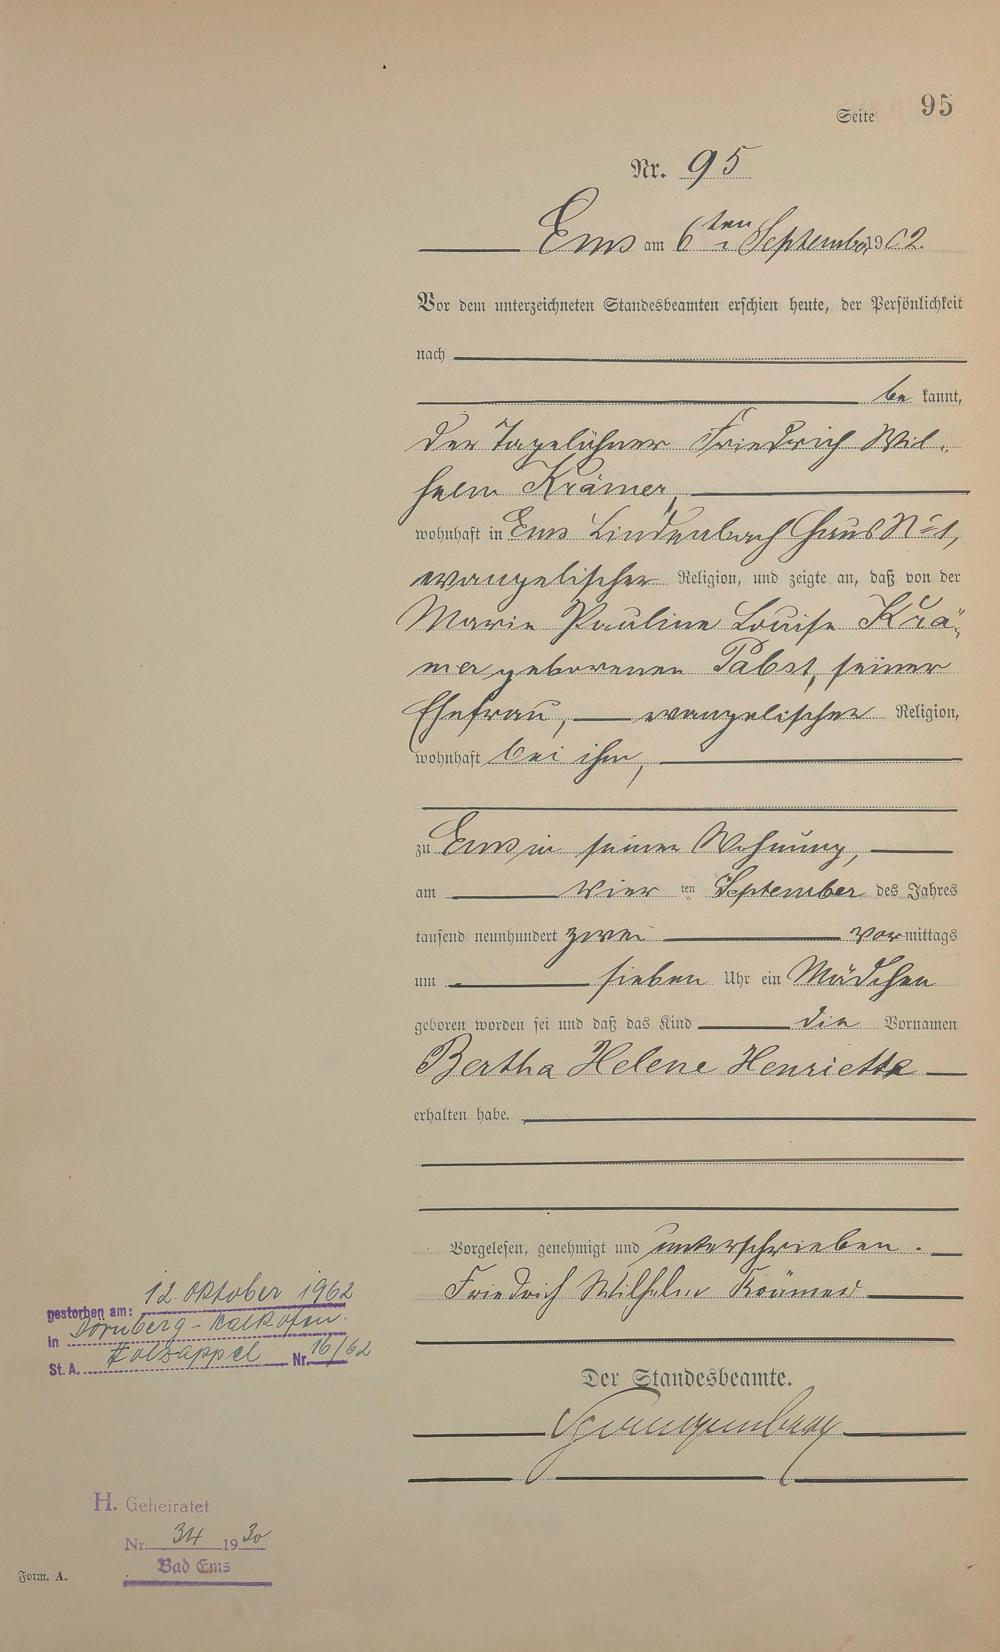 Seite 95
Nr. 95
Ems am 6ten September 1902.
Vor dem unterzeichneten Standesbeamten erschien heute, der Persönlichkeit
nach
bekannt,
der Tagelöhner Friedrich Wil-
helm Krämer,
wohnhaft in Ems Lindenbach Haus No 1,
evangelischer Religion, und zeigte an, daß von der
Marie Pauline Louise Krä-
mer geborenen Pabst, seiner
Ehefrau, evangelischer Religion,
wohnhaft bei ihm,
zu Ems in seiner Wohnung,
am vier ten September des Jahres
tausend neunhundert zwei vormittags
um sieben Uhr ein Mädchen
geboren worden sei und daß das Kind die Vornamen
Bertha Helene Henriette
erhalten habe.
Vorgelesen, genehmigt und unterschrieben.
Friedrich Wilhelm Krämer
Der Standesbeamte.
gestorben am: 12. Oktober 1962
in Dörnberg-Kalkofen.
St. A. Holzappel Nr. 16/62
H. Geheiratet
Nr. 34 1930
Bad Ems
Form. A.